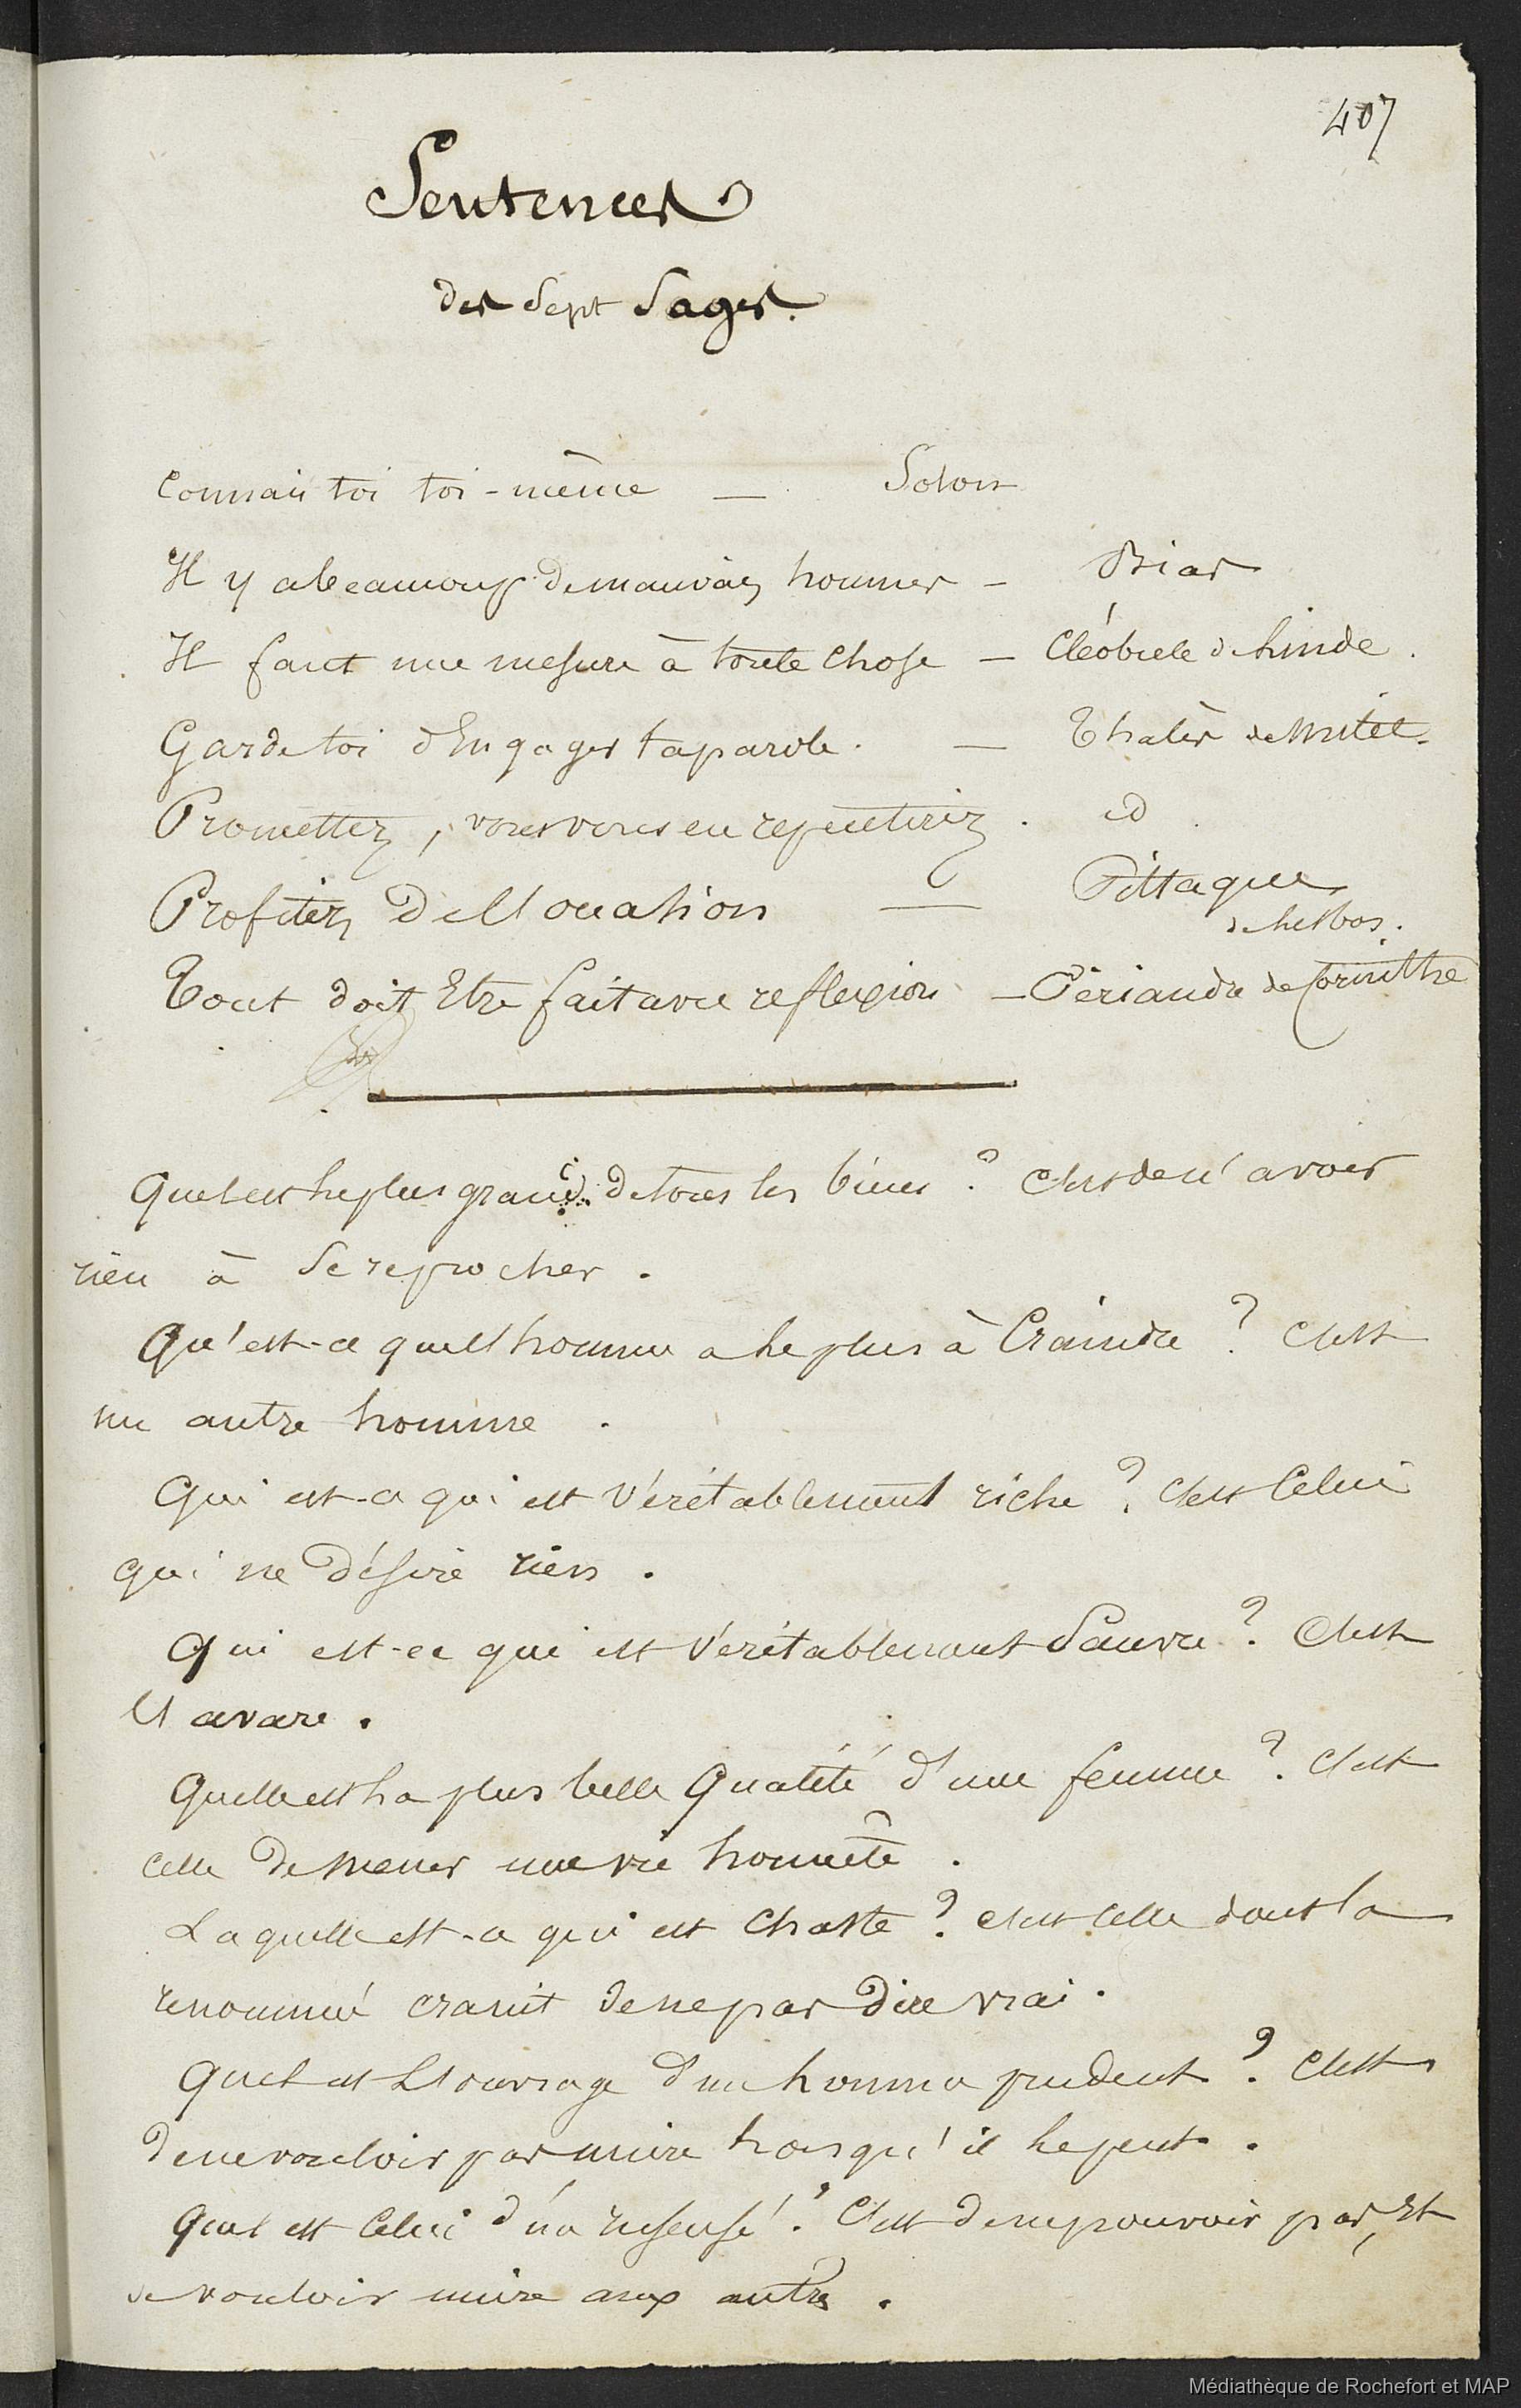 407
Sentences
des Sept Sages.
Connais toi toi-même — Solon
Il y a beaucoup de mauvais hommes — Bias
Il faut une mesure à toute chose — Cléobule de Linde.
Garde toi d'Engager ta parole. — Thalès de Milet.
Promettez, vous vous en repentirez. id.
Profitez De l'ocation — Pittaque
de Lesbos.
Tout doit Etre fait avec reflexion — Périandre de Corinthe
Quel est le plus grand de tous les biens ? C'est de n'avoir
rien à se reprocher.
Qu'est-ce que l'homme a le plus à Craindre ? C'est
un autre homme.
Qui est-ce qui est véritablement riche ? C'est Celui
qui ne Désire rien.
Qui est-ce qui est véritablement Pauvre ? C'est
l'avare.
Quelle est la plus belle Qualité d'une femme ? C'est
celle De mener une vie honnête.
Laquelle est-ce qui est Chaste ? C'est celle dont la
renommée craint de ne pas Dire vrai.
Quel est L'ouvrage d'un homme prudent ? C'est
De ne vouloir pas nuire lorsqu'il le peut.
Quel est Celui d'un insensé ? C'est De ne pouvoir pas, Et
de vouloir nuire aux autres.
Médiathèque de Rochefort et MAP